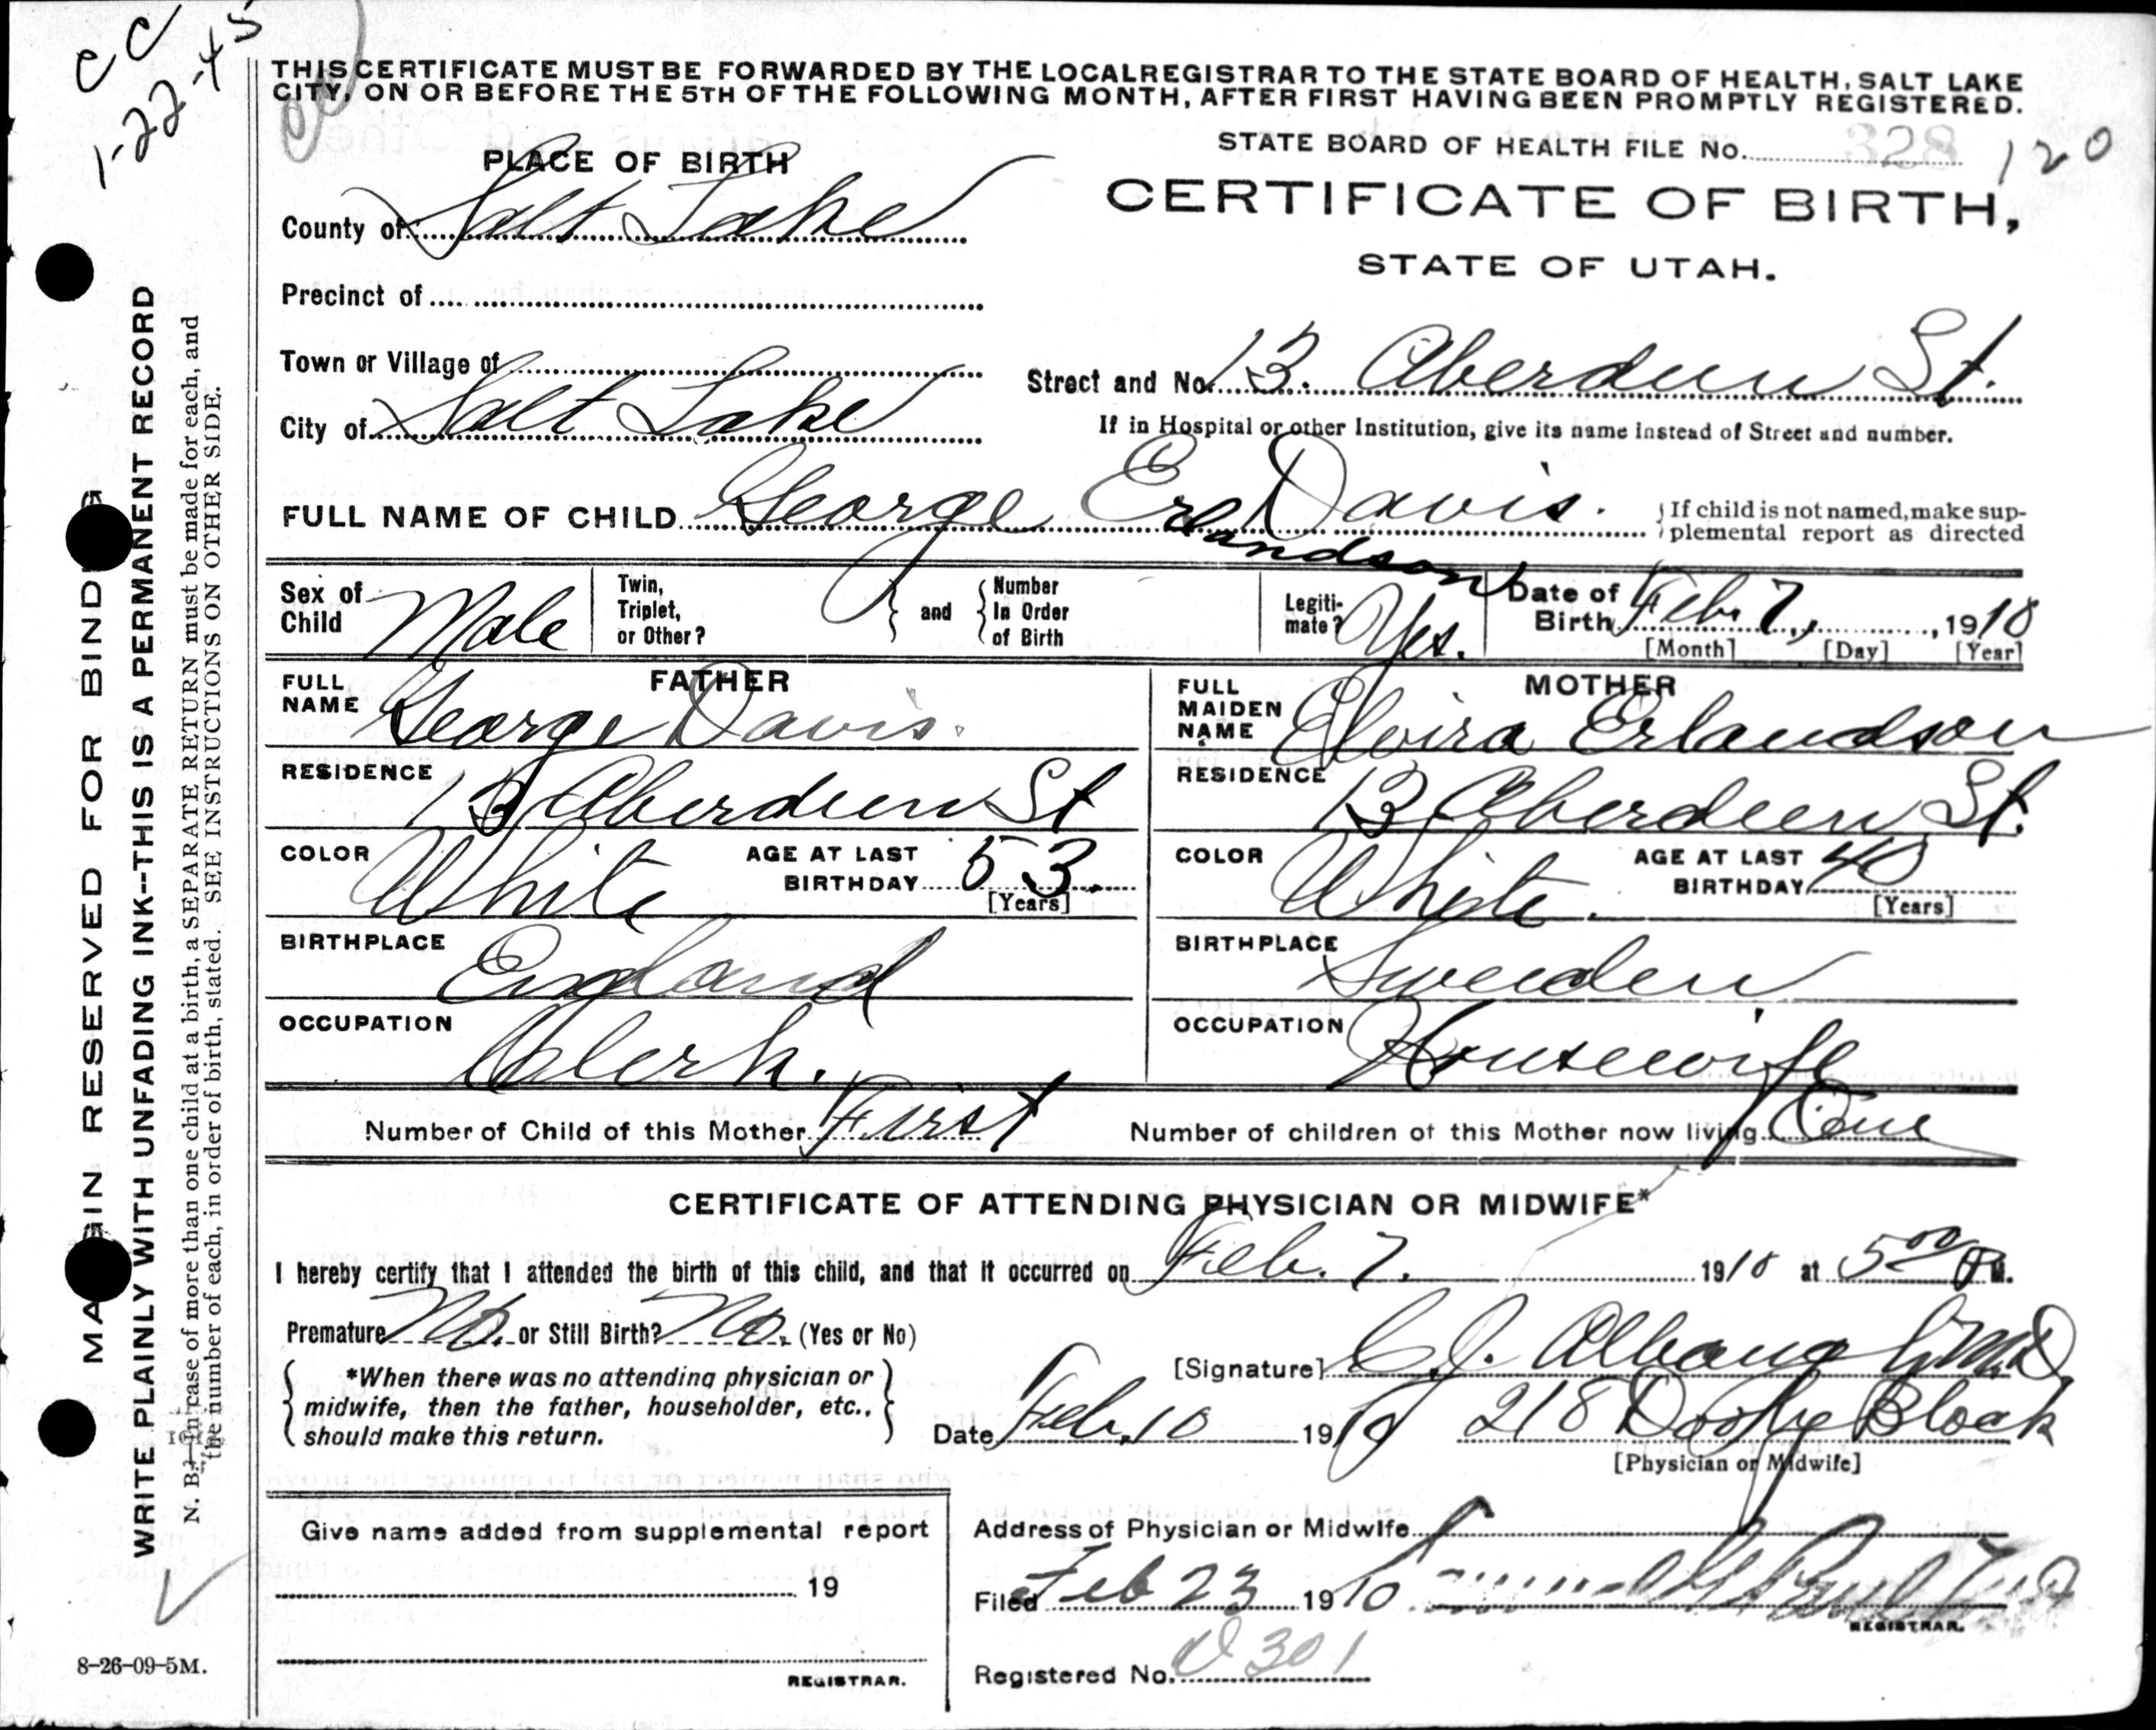 CC
1-22-45
THIS CERTIFICATE MUST BE FORWARDED BY THE LOCAL REGISTRAR TO THE STATE BOARD OF HEALTH, SALT LAKE
CITY, ON OR BEFORE THE 5TH OF THE FOLLOWING MONTH, AFTER FIRST HAVING BEEN PROMPTLY REGISTERED.
STATE BOARD OF HEALTH FILE No. 328 120
PLACE OF BIRTH
CERTIFICATE OF BIRTH,
STATE OF UTAH.
County of Salt Lake
Precinct of
Town or Village of
Street and No. 13. Aberdeen St.
City of Salt Lake
If in Hospital or other Institution, give its name instead of Street and number.
FULL NAME OF CHILD George Erlandson Davis.
If child is not named, make sup-
plemental report as directed
Sex of Child Male
Twin, Triplet, or Other?
and
Number In Order of Birth
Legiti-mate? Yes.
Date of Birth Feb. 7, 1910
[Month] [Day] [Year]
FATHER
FULL NAME George Davis.
RESIDENCE 13 Aberdeen St
COLOR White
AGE AT LAST BIRTHDAY 53.
[Years]
BIRTHPLACE England
OCCUPATION Clerk.
MOTHER
FULL MAIDEN NAME Elvira Erlandson
RESIDENCE 13 Aberdeen St.
COLOR White.
AGE AT LAST BIRTHDAY 40
[Years]
BIRTHPLACE Sweeden
OCCUPATION Housewife
Number of Child of this Mother First
Number of children of this Mother now living One
CERTIFICATE OF ATTENDING PHYSICIAN OR MIDWIFE*
I hereby certify that I attended the birth of this child, and that it occurred on Feb. 7. 1910 at 5 00 P M.
Premature No. or Still Birth? No. (Yes or No)
*When there was no attending physician or
midwife, then the father, householder, etc.,
should make this return.
[Signature] C. J. Albaugh M.D.
Date Feb. 10 1910 218 Dooly Block
[Physician or Midwife]
Give name added from supplemental report
19
REGISTRAR.
Address of Physician or Midwife
Filed Feb 23 1910
REGISTRAR.
Registered No. 301
MARGIN RESERVED FOR BINDING
WRITE PLAINLY WITH UNFADING INK--THIS IS A PERMANENT RECORD
N. B.—In case of more than one child at a birth, a SEPARATE RETURN must be made for each, and
the number of each, in order of birth, stated. SEE INSTRUCTIONS ON OTHER SIDE.
8-26-09-5M.